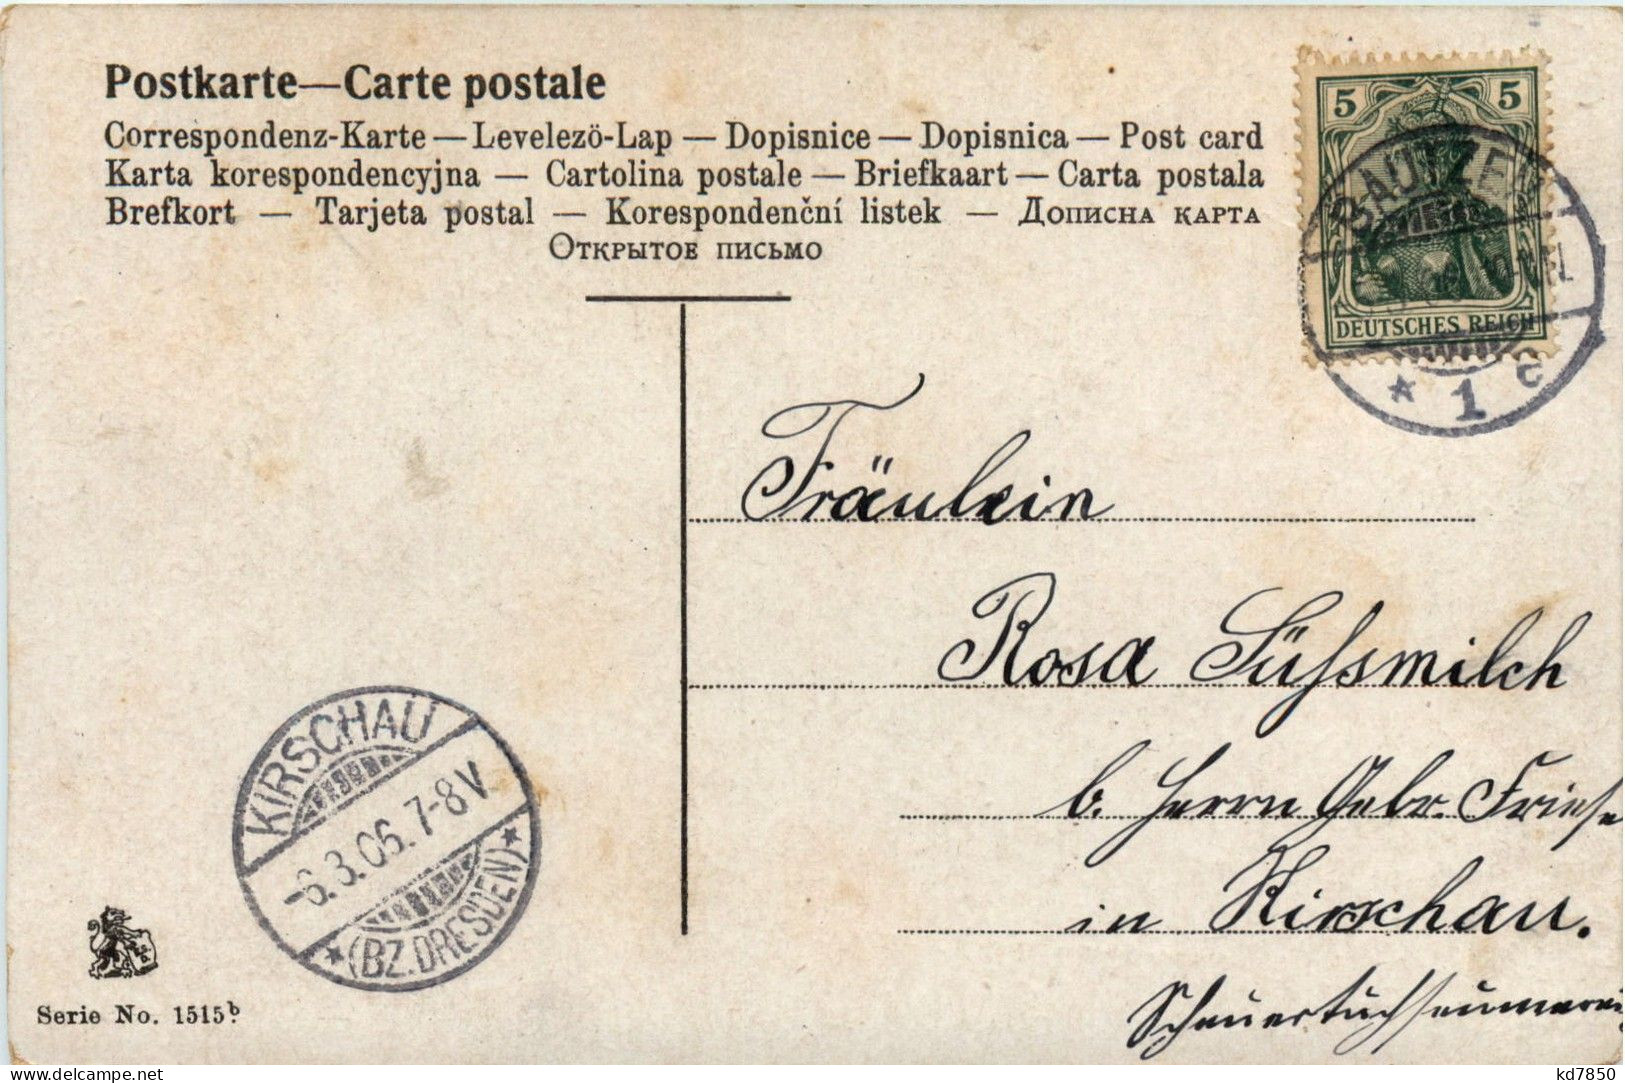 Postkarte—Carte postale
Correspondenz-Karte — Levelezö-Lap — Dopisnice — Dopisnica — Post card
Karta korespondencyjna — Cartolina postale — Briefkaart — Carta postala
Brefkort — Tarjeta postal — Korespondenční listek — Дописна карта
Открытое письмо
5 5
DEUTSCHES REICH
BAUTZEN
* 1 c
Fräulein
Rosa Süssmilch
b. Herrn Gebr. Friese
in Kirschau.
Scheuertuchsäumerei
KIRSCHAU
-6.3.06. 7-8V
*(BZ. DRESDEN)*
Serie No. 1515b.
delcampe.net
kd7850